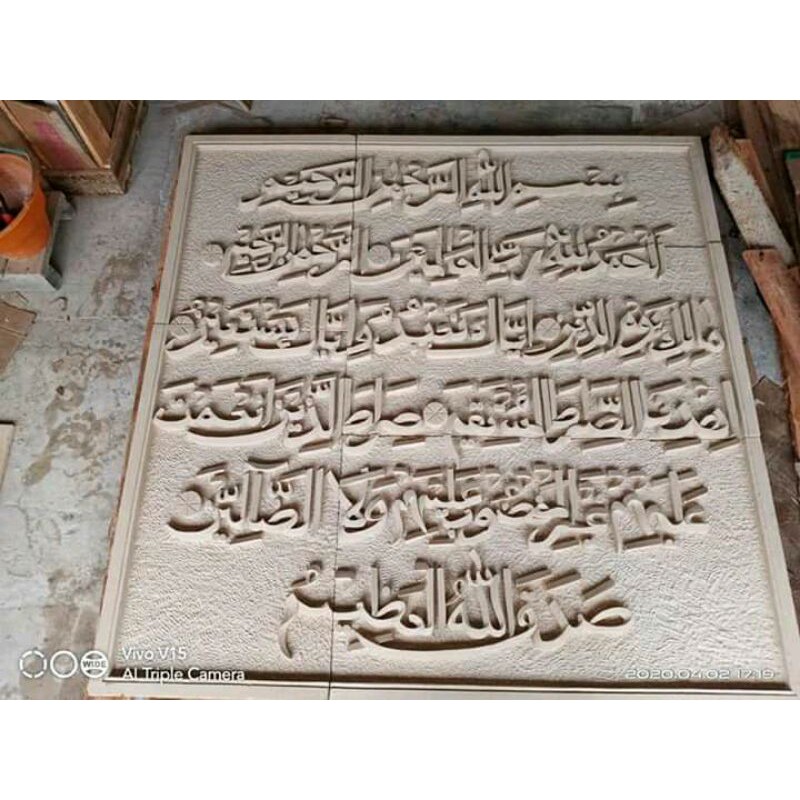 بسم الله الرحمن الرحيم
الحمد لله رب العالمين الرحمن الرحيم
مالك يوم الدين إياك نعبد وإياك نستعين
اهدنا الصراط المستقيم صراط الذين أنعمت
عليهم غير المغضوب عليهم ولا الضالين
صدق الله العظيم
Vivo V15
AI Triple Camera
WIDE
2020.04.02 17:15